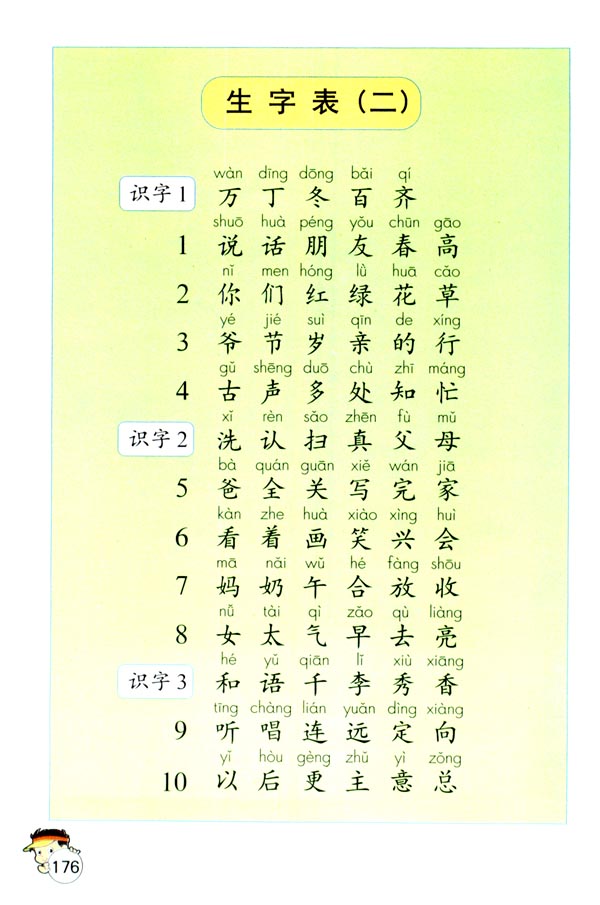 生字表(二)
wàn dīng dōng bǎi qí
识字1 万 丁 冬 百 齐
shuō huà péng yǒu chūn gāo
1 说 话 朋 友 春 高
nǐ men hóng lǜ huā cǎo
2 你 们 红 绿 花 草
yé jié suì qīn de xíng
3 爷 节 岁 亲 的 行
gǔ shēng duō chù zhī máng
4 古 声 多 处 知 忙
xǐ rèn sǎo zhēn fù mǔ
识字2 洗 认 扫 真 父 母
bà quán guān xiě wán jiā
5 爸 全 关 写 完 家
kàn zhe huà xiào xìng huì
6 看 着 画 笑 兴 会
mā nǎi wǔ hé fàng shōu
7 妈 奶 午 合 放 收
nǚ tài qì zǎo qù liàng
8 女 太 气 早 去 亮
hé yǔ qiān lǐ xiù xiāng
识字3 和 语 千 李 秀 香
tīng chàng lián yuǎn dìng xiàng
9 听 唱 连 远 定 向
yǐ hòu gèng zhǔ yì zǒng
10 以 后 更 主 意 总
176